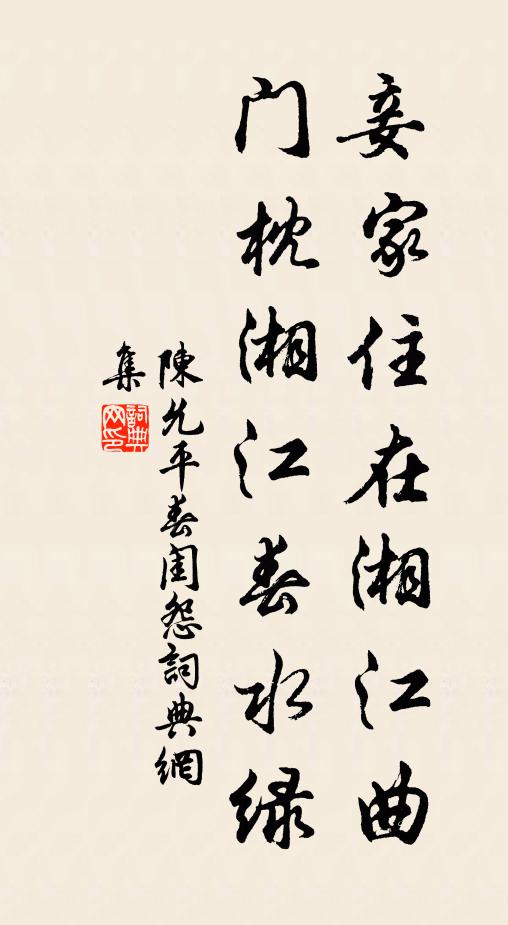 妾家住在湘江曲
門枕湘江春水緑
陳允平春閨怨詞典網
集
詞典网印